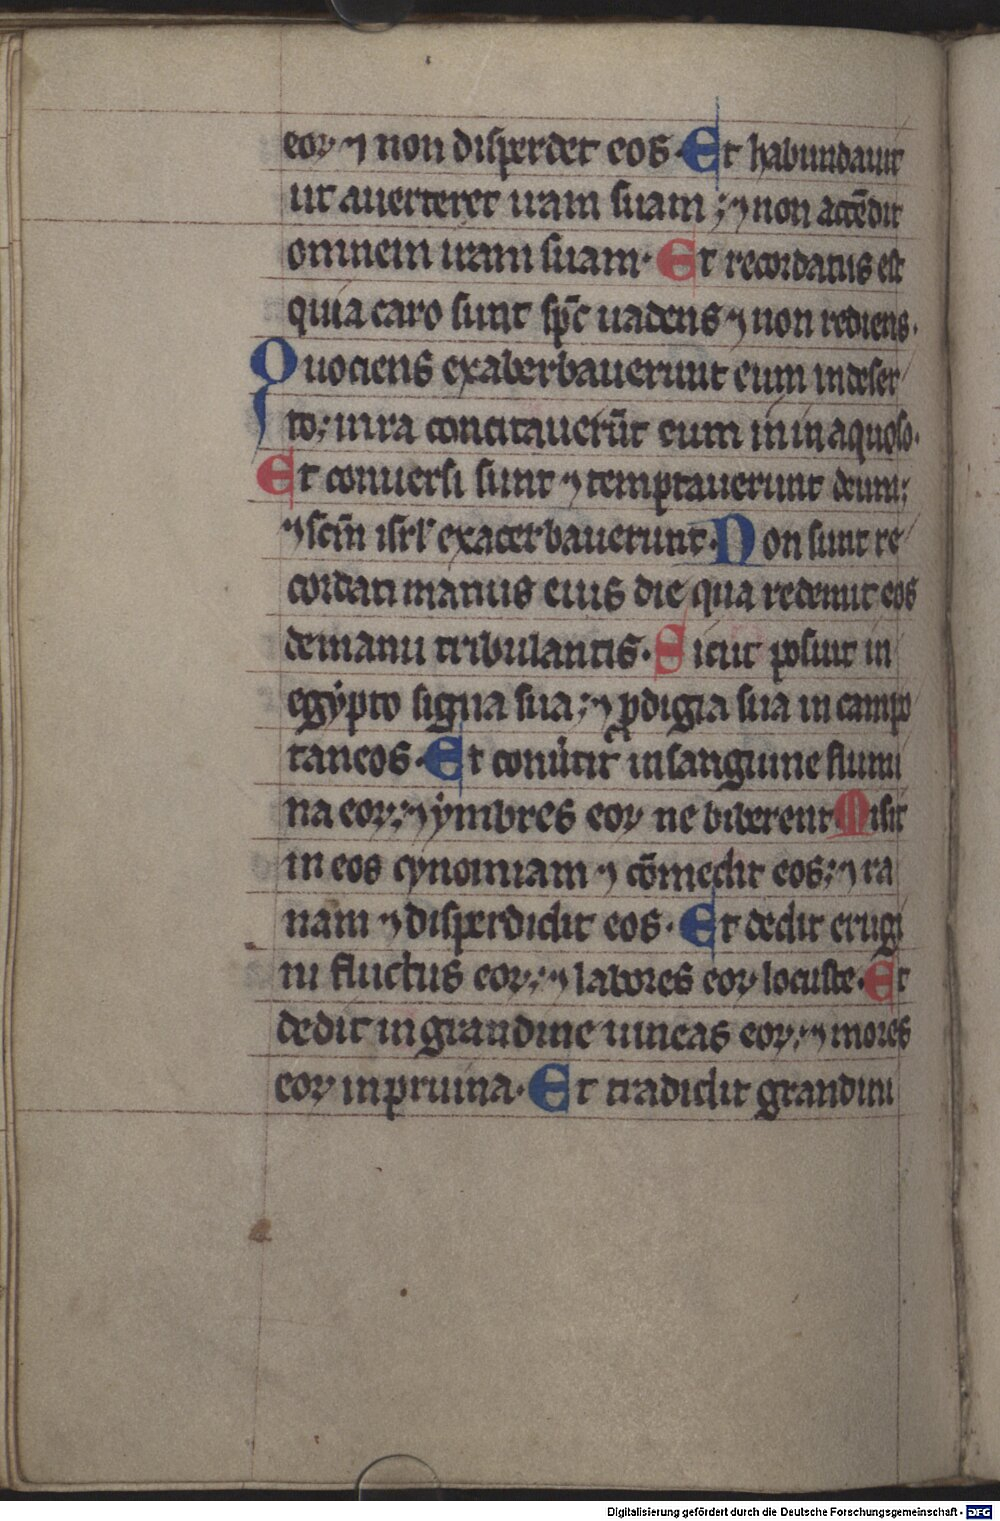 eoꝝ ⁊ non disperdet eos. Et habundauit
ut auerteret iram suam; ⁊ non accēdit
omnem iram suam. Et recordatus est
quia caro sunt sp̄c uadens ⁊ non rediens.
Quociens exaberbauerunt eum indeser
to; inira concitauerūt eum in inaquoso.
Et conuersi sunt ⁊ temptauerunt deum;
⁊ scm̄ isrl' exacerbauerunt. Non sunt re
cordati manus eius die qua redemit eos
demanu tribulantis. Sicut posuit in
egypto signa sua; ⁊ ꝓdigia sua in campo
taneos. Et conu͛tit insanguine flumi
na eoꝝ; ⁊ ymbres eoꝝ ne biberent. Misit
in eos cynomiam ⁊ cōmedit eos; ⁊ ra
nam ⁊ disperdidit eos. Et dedit erugi
ni fluctus eoꝝ; ⁊ labores eoꝝ locuste. Et
dedit ingrandine uineas eoꝝ; ⁊ mores
eoꝝ inpruina. Et tradidit grandini
Digitalisierung gefördert durch die Deutsche Forschungsgemeinschaft - DFG